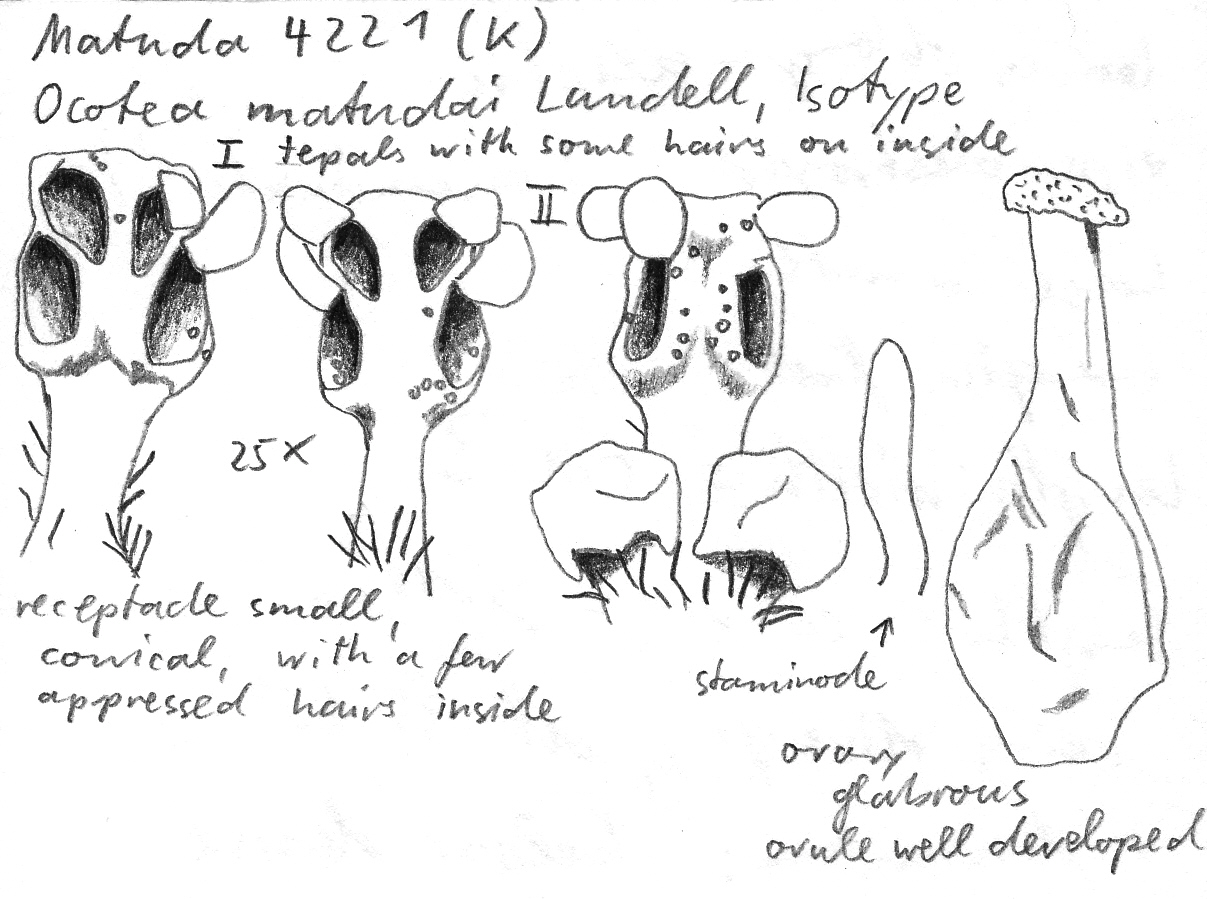 Matuda 4221 (K)
Ocotea matudai Lundell, Isotype
I tepals with some hairs on inside
II
25x
receptacle small,
conical, with a few
appressed hairs inside
staminode
ovary
glabrous
ovule well developed